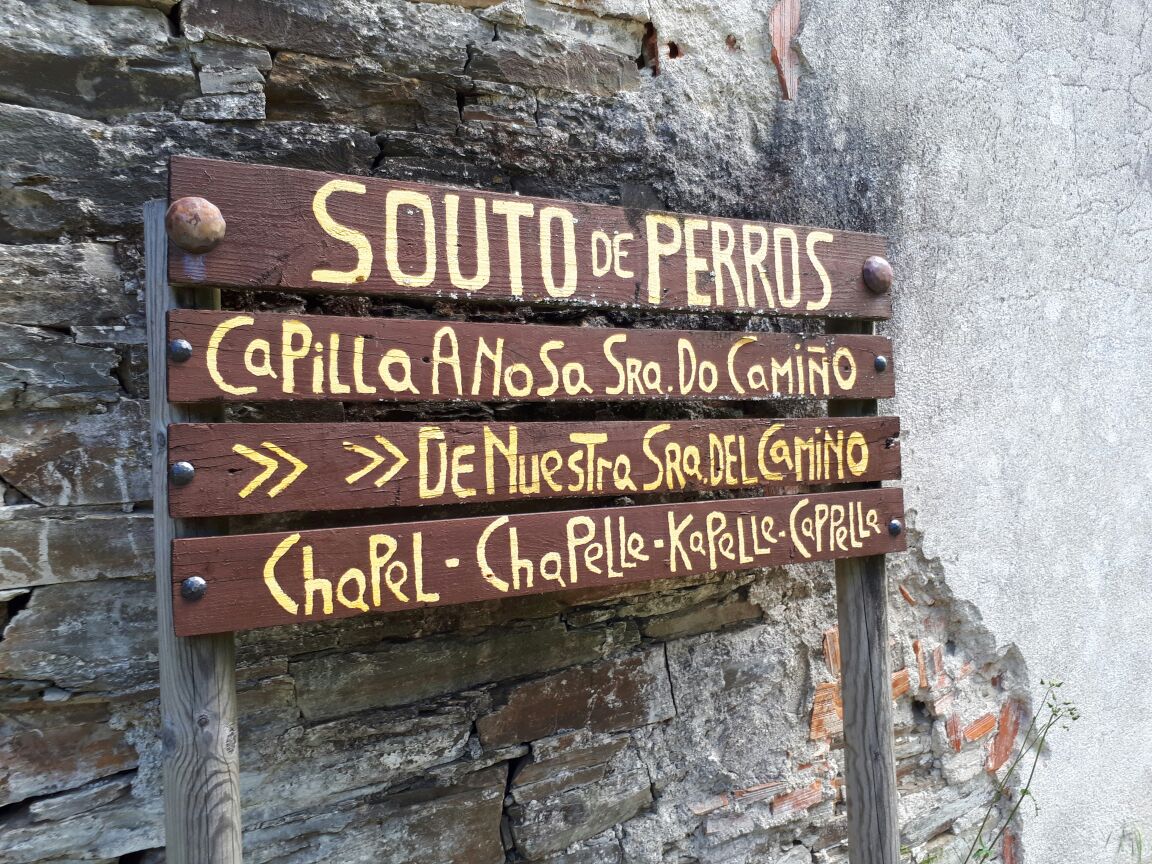 SOUTO DE PERROS
CAPILLA A NOSA SRA. DO CAMIÑO
>> >> DE NUESTRA SRA. DEL CAMINO
CHAPEL - CHAPELLE - KAPELLE - CAPPELLA